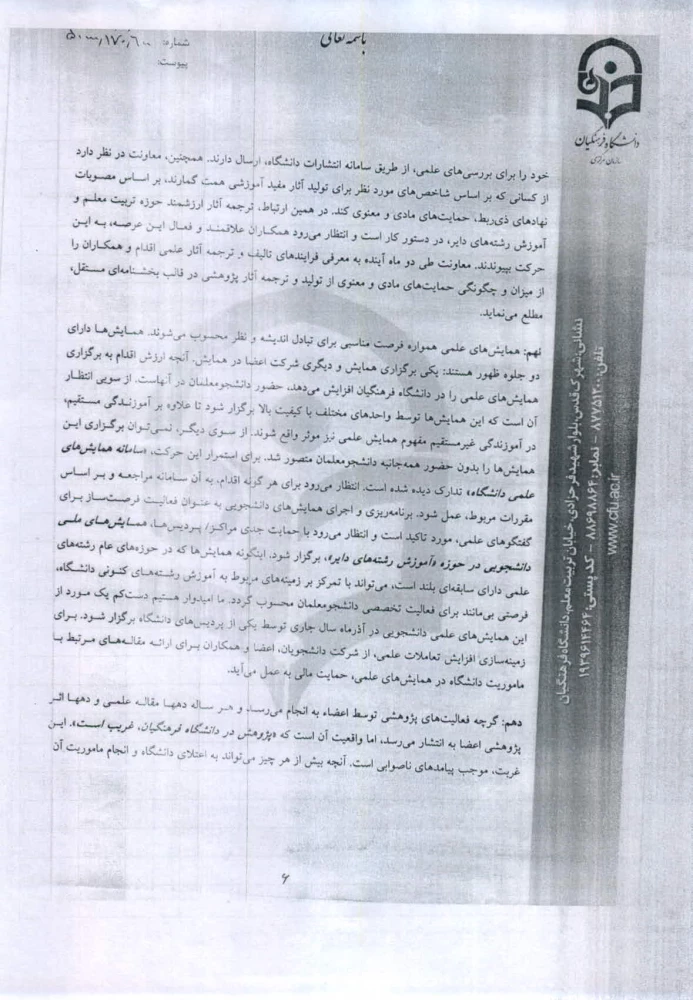 باسمه تعالی
شماره: ۵۰۰۰۰/۱۷۰/۶۰۰
پیوست:
دانشگاه فرهنگیان
سازمان مرکزی
خود را برای بررسی‌های علمی، از طریق سامانه انتشارات دانشگاه، ارسال دارند. همچنین، معاونت در نظر دارد
از کسانی که بر اساس شاخص‌های مورد نظر برای تولید آثار مفید آموزشی همت گمارند، بر اساس مصوبات
نهادهای ذی‌ربط، حمایت‌های مادی و معنوی کند. در همین ارتباط، ترجمه آثار ارزشمند حوزه تربیت معلم و
آموزش رشته‌های دایر، در دستور کار است و انتظار می‌رود همکاران علاقمند و فعال این عرصه، به این
حرکت بپیوندند. معاونت طی دو ماه آینده به معرفی فرایندهای تالیف و ترجمه آثار علمی اقدام و همکاران را
از میزان و چگونگی حمایت‌های مادی و معنوی از تولید و ترجمه آثار پژوهشی در قالب بخشنامه‌ای مستقل،
مطلع می‌نماید.
نهم: همایش‌های علمی همواره فرصت مناسبی برای تبادل اندیشه و نظر محسوب می‌شوند. همایش‌ها دارای
دو جلوه ظهور هستند: یکی برگزاری همایش و دیگری شرکت اعضا در همایش. آنچه ارزش اقدام به برگزاری
همایش‌های علمی را در دانشگاه فرهنگیان افزایش می‌دهد، حضور دانشجومعلمان در آنهاست. از سویی انتظار
آن است که این همایش‌ها توسط واحدهای مختلف با کیفیت بالا برگزار شود تا علاوه بر آموزندگی مستقیم،
در آموزندگی غیرمستقیم مفهوم همایش علمی نیز موثر واقع شوند. از سوی دیگر، نمی‌توان برگزاری این
همایش‌ها را بدون حضور همه‌جانبه دانشجومعلمان متصور شد. برای استمرار این حرکت، «سامانه همایش‌های
علمی دانشگاه» تدارک دیده شده است. انتظار می‌رود برای هر گونه اقدام، به آن سامانه مراجعه و بر اساس
مقررات مربوط، عمل شود. برنامه‌ریزی و اجرای همایش‌های دانشجویی به عنوان فعالیت فرصت‌ساز برای
گفتگوهای علمی، مورد تاکید است و انتظار می‌رود با حمایت جدی مراکز/ پردیس‌ها، همایش‌های ملی
دانشجویی در حوزه «آموزش رشته‌های دایر»، برگزار شود. اینگونه همایش‌ها که در حوزه‌های عام رشته‌های
علمی دارای سابقه‌ای بلند است، می‌تواند با تمرکز بر زمینه‌های مربوط به آموزش رشته‌های کنونی دانشگاه،
فرصتی بی‌مانند برای فعالیت تخصصی دانشجومعلمان محسوب گردد. ما امیدوار هستیم دست‌کم یک مورد از
این همایش‌های علمی دانشجویی در آذرماه سال جاری توسط یکی از پردیس‌های دانشگاه برگزار شود. برای
زمینه‌سازی افزایش تعاملات علمی، از شرکت دانشجویان، اعضا و همکاران برای ارائه مقاله‌های مرتبط با
ماموریت دانشگاه در همایش‌های علمی، حمایت مالی به عمل می‌آید.
دهم: گرچه فعالیت‌های پژوهشی توسط اعضاء به انجام می‌رسد و هر ساله دهها مقاله علمی و دهها اثر
پژوهشی اعضا به انتشار می‌رسد، اما واقعیت آن است که «پژوهش در دانشگاه فرهنگیان، غریب است». این
غربت، موجب پیامدهای ناصوابی است. آنچه بیش از هر چیز می‌تواند به اعتلای دانشگاه و انجام ماموریت آن
۶
نشانی: شهرک قدس، بلوار شهید فرحزادی، خیابان تربیت معلم، دانشگاه فرهنگیان
تلفن: ۸۷۷۵۱۲۰۰ – نمابر: ۸۸۶۹۸۸۶۴ – کد پستی: ۱۹۳۹۶۱۴۴۶۴
www.cfu.ac.ir